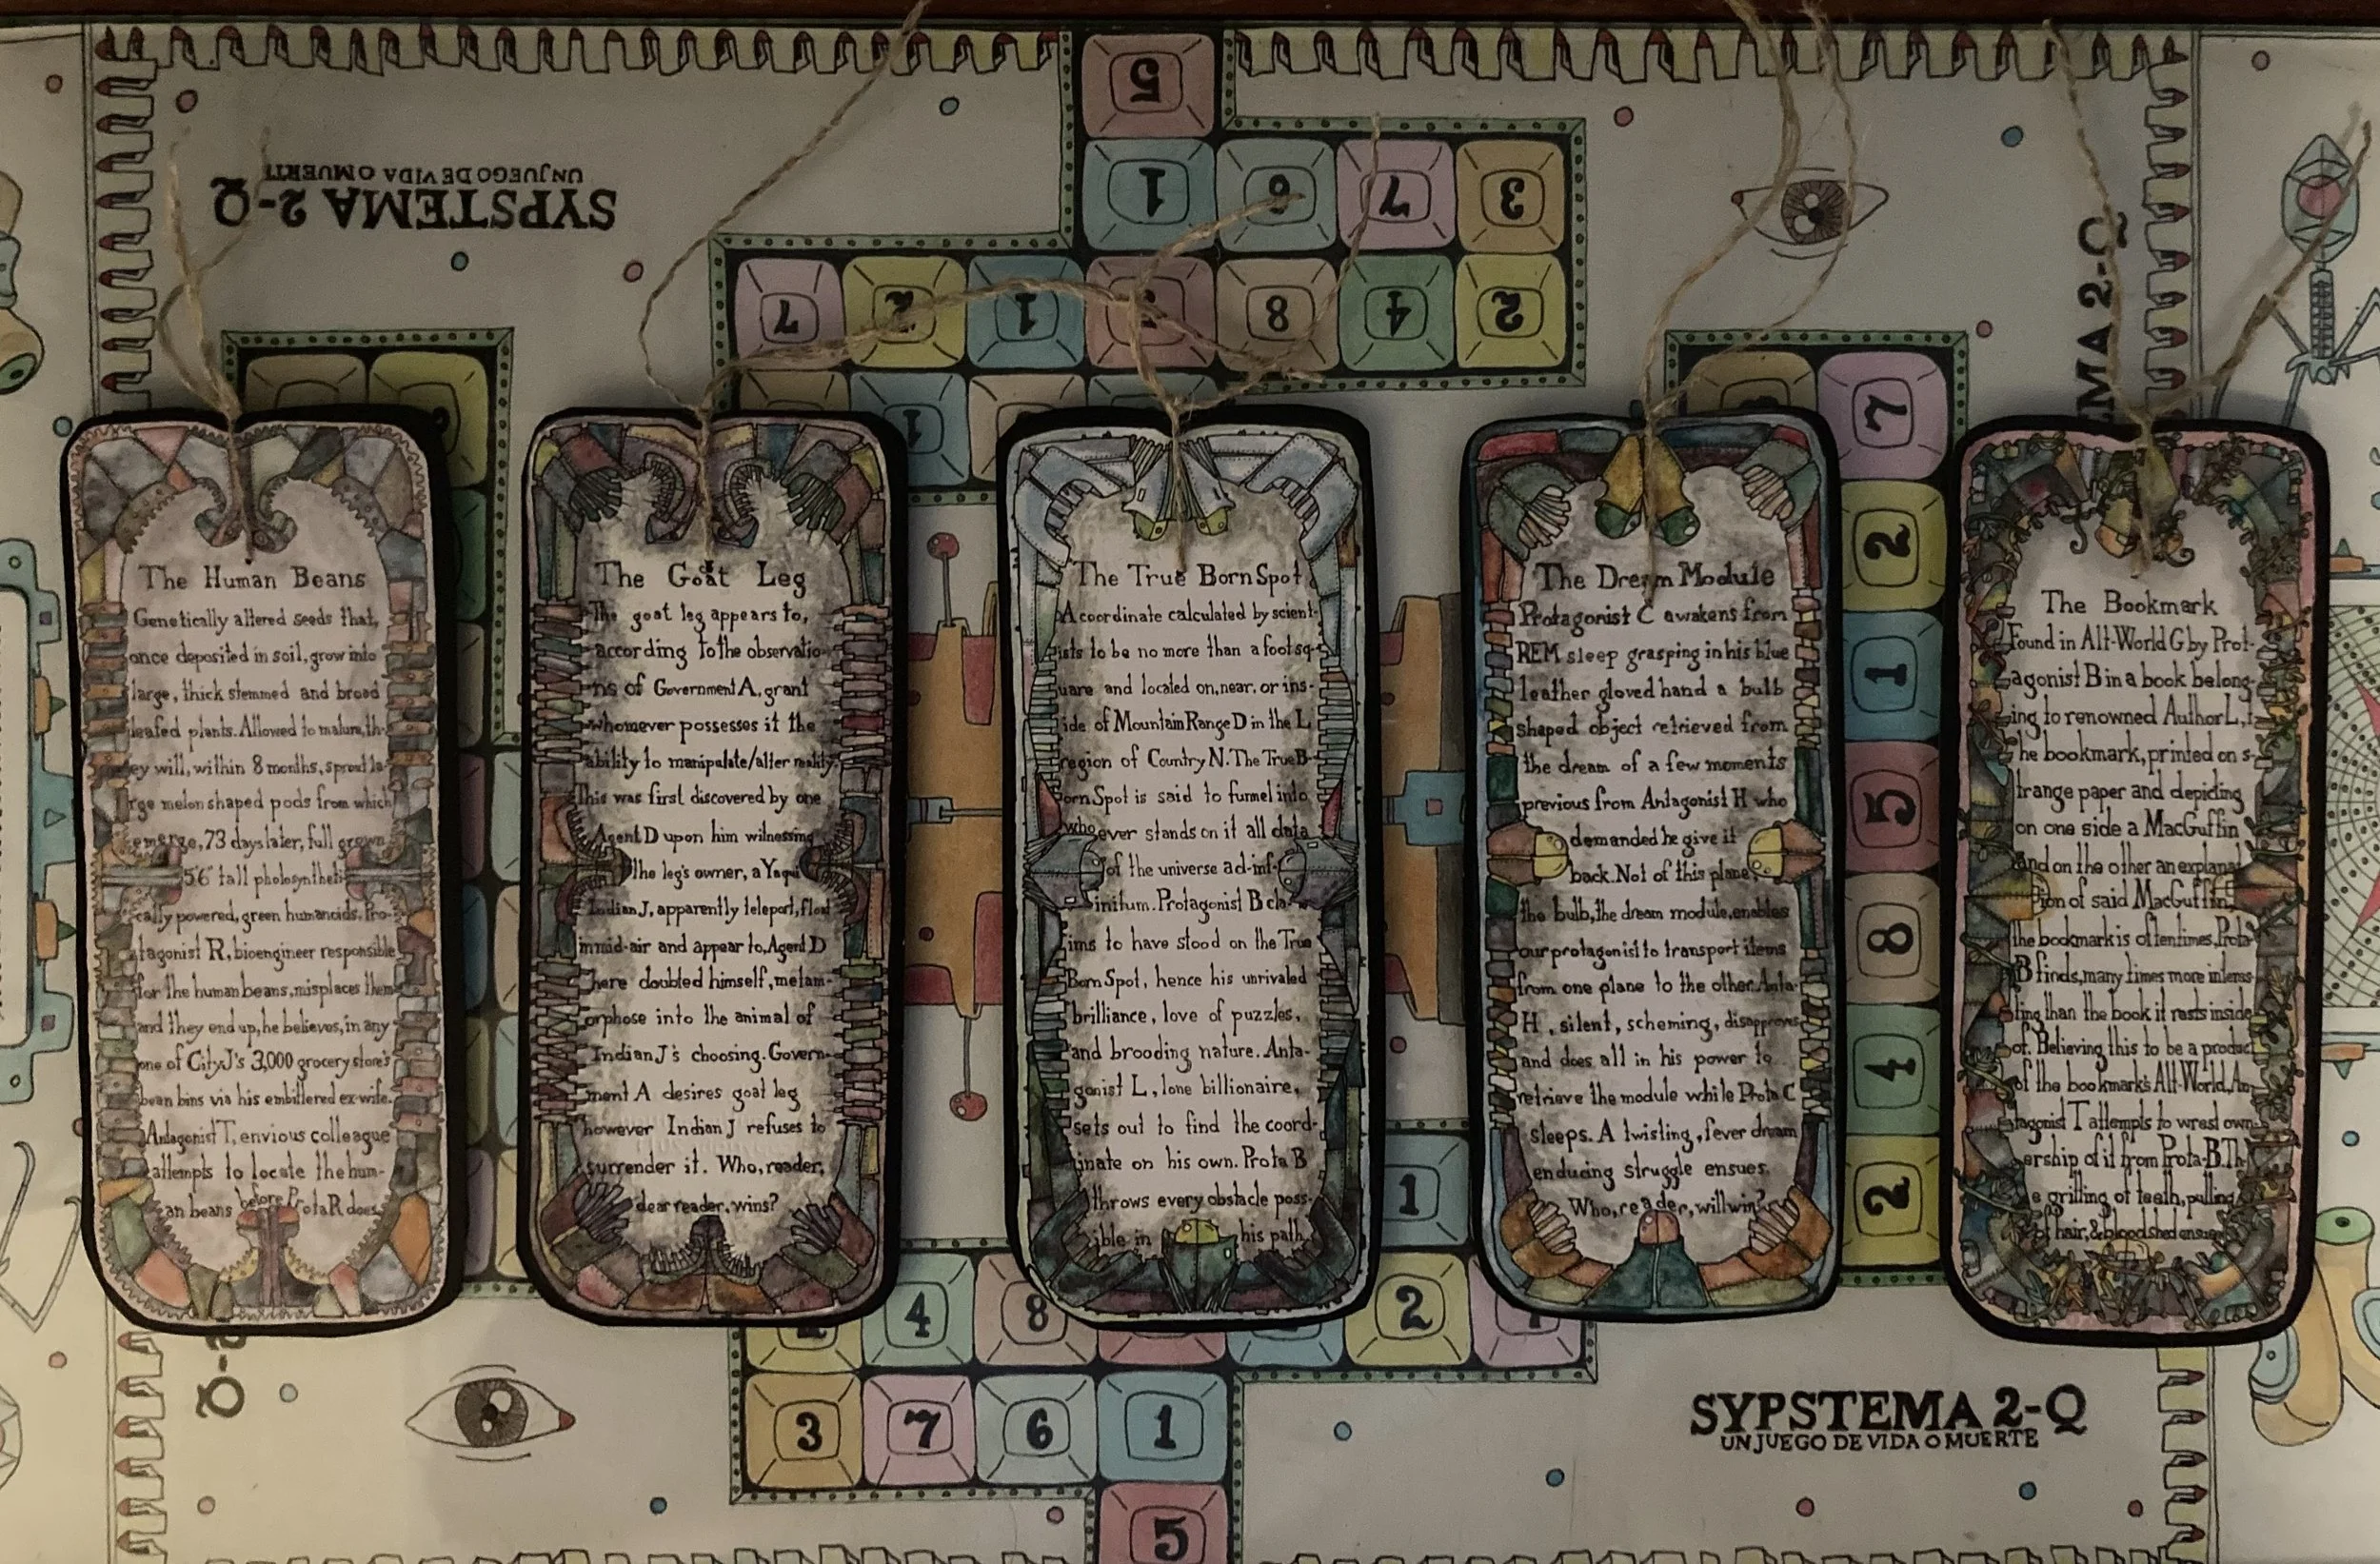 SYPSTEMA 2-Q
UN JUEGO DE VIDA O MUERTE
5
1 6 7 3
7 2 1 8 4 2
1
7
2
1
5
8
4
2
The Human Beans
Genetically altered seeds that,
once deposited in soil, grow into
large, thick stemmed and broad
leafed plants. Allowed to mature, th-
ey will, within 8 months, sprout la-
rge melon shaped pods from which
emerge, 73 days later, full grown
5'6" tall photosyntheti-
cally powered, green humanoids. Pro-
tagonist R, bioengineer responsible
for the human beans, misplaces them
and they end up, he believes, in any
one of City J's 3,000 grocery store's
bean bins via his embittered ex-wife.
Antagonist T, envious colleague
attempts to locate the hum-
an beans before Prota R does.
The Goat Leg
The goat leg appears to,
according to the observatio-
ns of Government A, grant
whomever possesses it the
ability to manipulate/alter reality.
This was first discovered by one
Agent D upon him witnessing
the leg's owner, a Yaqui
Indian J, apparently teleport, float
in mid-air and appear to, Agent D
here doubled himself, metam-
orphose into the animal of
Indian J's choosing. Govern-
ment A desires goat leg
however Indian J refuses to
surrender it. Who, reader,
dear reader, wins?
The True Born Spot
A coordinate calculated by scient-
ists to be no more than a foot sq-
uare and located on, near, or ins-
ide of Mountain Range D in the L
region of Country N. The True B-
orn Spot is said to funnel into
whoever stands on it all data
of the universe ad-inf-
initum. Protagonist B cla-
ims to have stood on the True
Born Spot, hence his unrivaled
brilliance, love of puzzles,
and brooding nature. Anta-
gonist L, lone billionaire,
sets out to find the coord-
inate on his own. Prota B
throws every obstacle poss-
ible in his path
The Dream Module
Protagonist C awakens from
REM sleep grasping in his blue
leather gloved hand a bulb
shaped object retrieved from
the dream of a few moments
previous from Antagonist H who
demanded he give it
back. Not of this plane,
the bulb, the dream module, enables
our protagonist to transport items
from one plane to the other. Anta-
H, silent, scheming, disapproves
and does all in his power to
retrieve the module while Prota C
sleeps. A twisting, fever dream
enducing struggle ensues.
Who, reader, will win?
The Bookmark
Found in Alt-World G by Prot-
agonist B in a book belong-
ing to renowned Author L, t-
he bookmark, printed on s-
trange paper and depicting
on one side a MacGuffin
and on the other an explanat-
ion of said MacGuffin,
the bookmark is oftentimes, Prota-
B finds, many times more interes-
ting than the book it rests inside
of. Believing this to be a product
of the bookmark's Alt-World, An-
tagonist T attempts to wrest own-
ership of it from Prota-B. Th-
e gritting of teeth, pulling
of hair, & bloodshed ensues
1
4 8 2
3 7 6 1
5
SYPSTEMA 2-Q
UN JUEGO DE VIDA O MUERTE